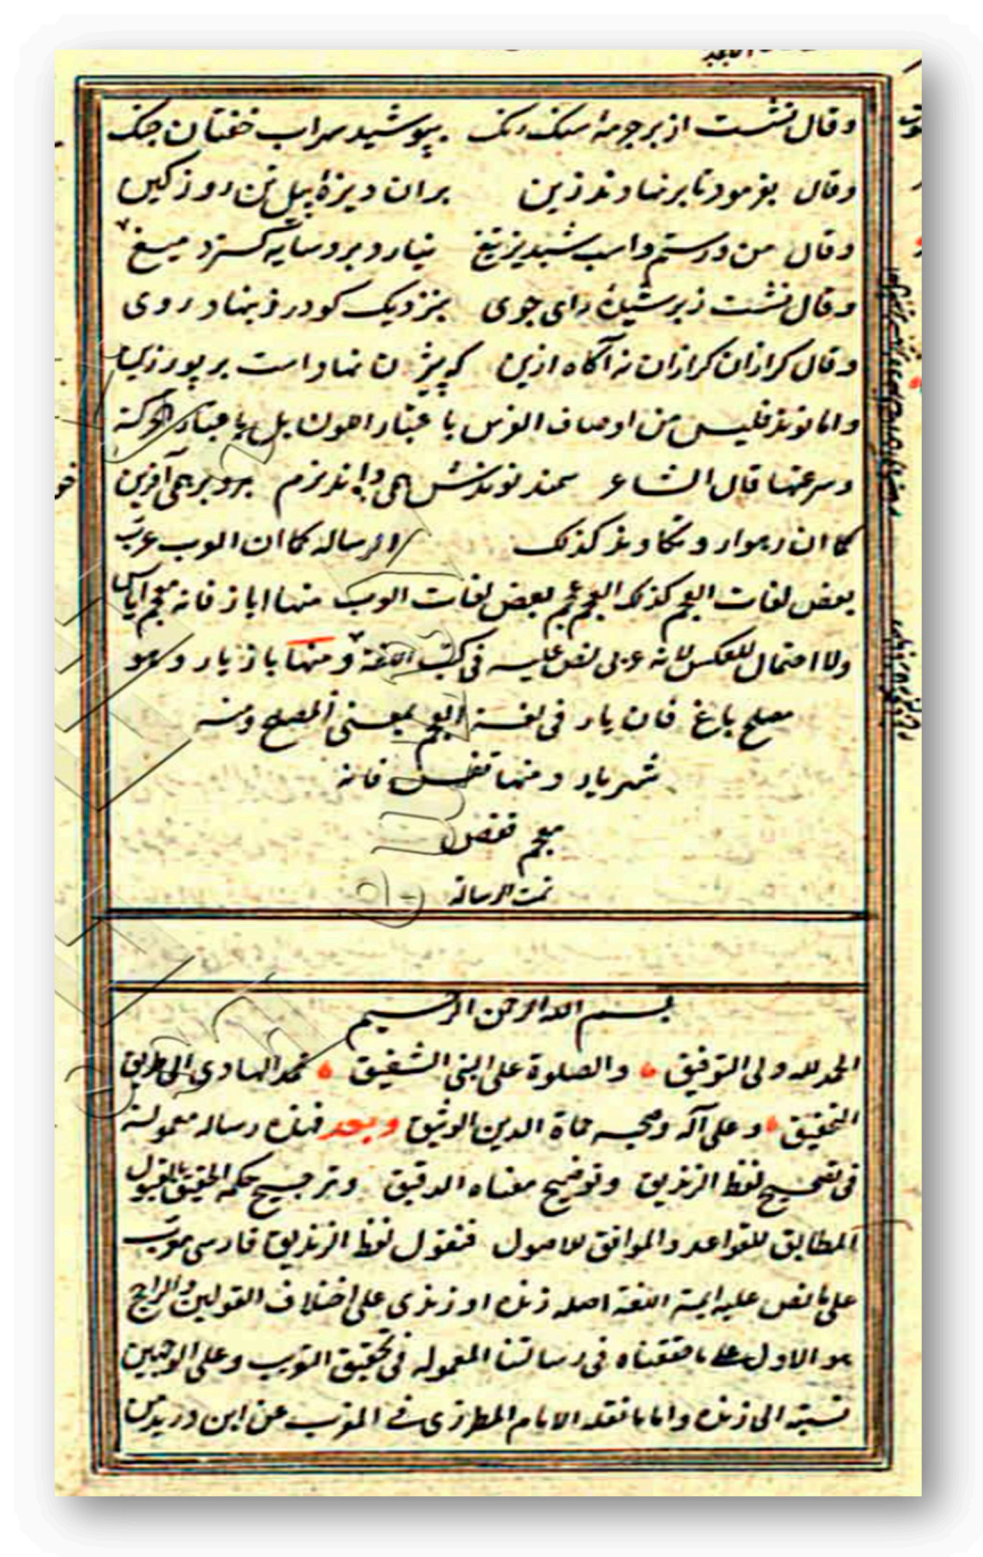 وقال نشست از بر جرمه سنگ رنگ بپوشید سهراب خفتان جنک
وقال بفرمود تا برنهادند زین بران دیزهٔ پیل تن روز کین
وقال من و رستم واسب شبدیز تیغ نیارد برو سایه کسترد میغ
وقال نشست از بر شیدۀ رای جوی بنزدیک کودرز بنهاد روی
وقال کرازان کرازان نه آگاه ازین که بیژن نهاد است بر بور زین
واما نوند فليس من اوصاف الفرس باعتبار اللون بل باعتبار الحركة
وسرعتها قال الشاعر سمند نوندش همی در نزم برو بر همی آفرین
كما ان رهوار وتكاوند كذلك الرسالة كما ان العرب عرّب
بعض لغات العجم كذلك العجم عجّم بعض لغات العرب منها اباز فانه معجم اياس
ولا احتمال للعكس لانه عربى نص عليه فى كتب اللغة ومنها بازيار وهو
مصلح باغ فان يار فى لغة العجم بمعنى المصلح ومنه
شهريار ومنها قفس فانه
معجم قفص
تمت الرسالة
بسم الله الرحمن الرحيم
الحمد لله ولى التوفيق والصلوة على النبى الشفيق محمد الهادى الى طريق
التحقيق وعلى آله وصحبه حماة الدين الوثيق وبعد فهذه رسالة معمولة
فى تصحيح لفظ الزنديق وتوضيح معناه الدقيق وترجيح حكمه الحقيق بالقبول
المطابق للقواعد والموافق للاصول فنقول لفظ الزنديق فارسى معرّب
على ما نص عليه ايمة اللغة اصله زنده او زندى على اختلاف القولين والراجح
هو الاول على ما حققناه فى رسالتنا المعمولة فى تحقيق التعريب وعلى الوجهين
نسبته الى زنده واما ما نقله الامام المطرزى فى المغرب عن ابن دريد من